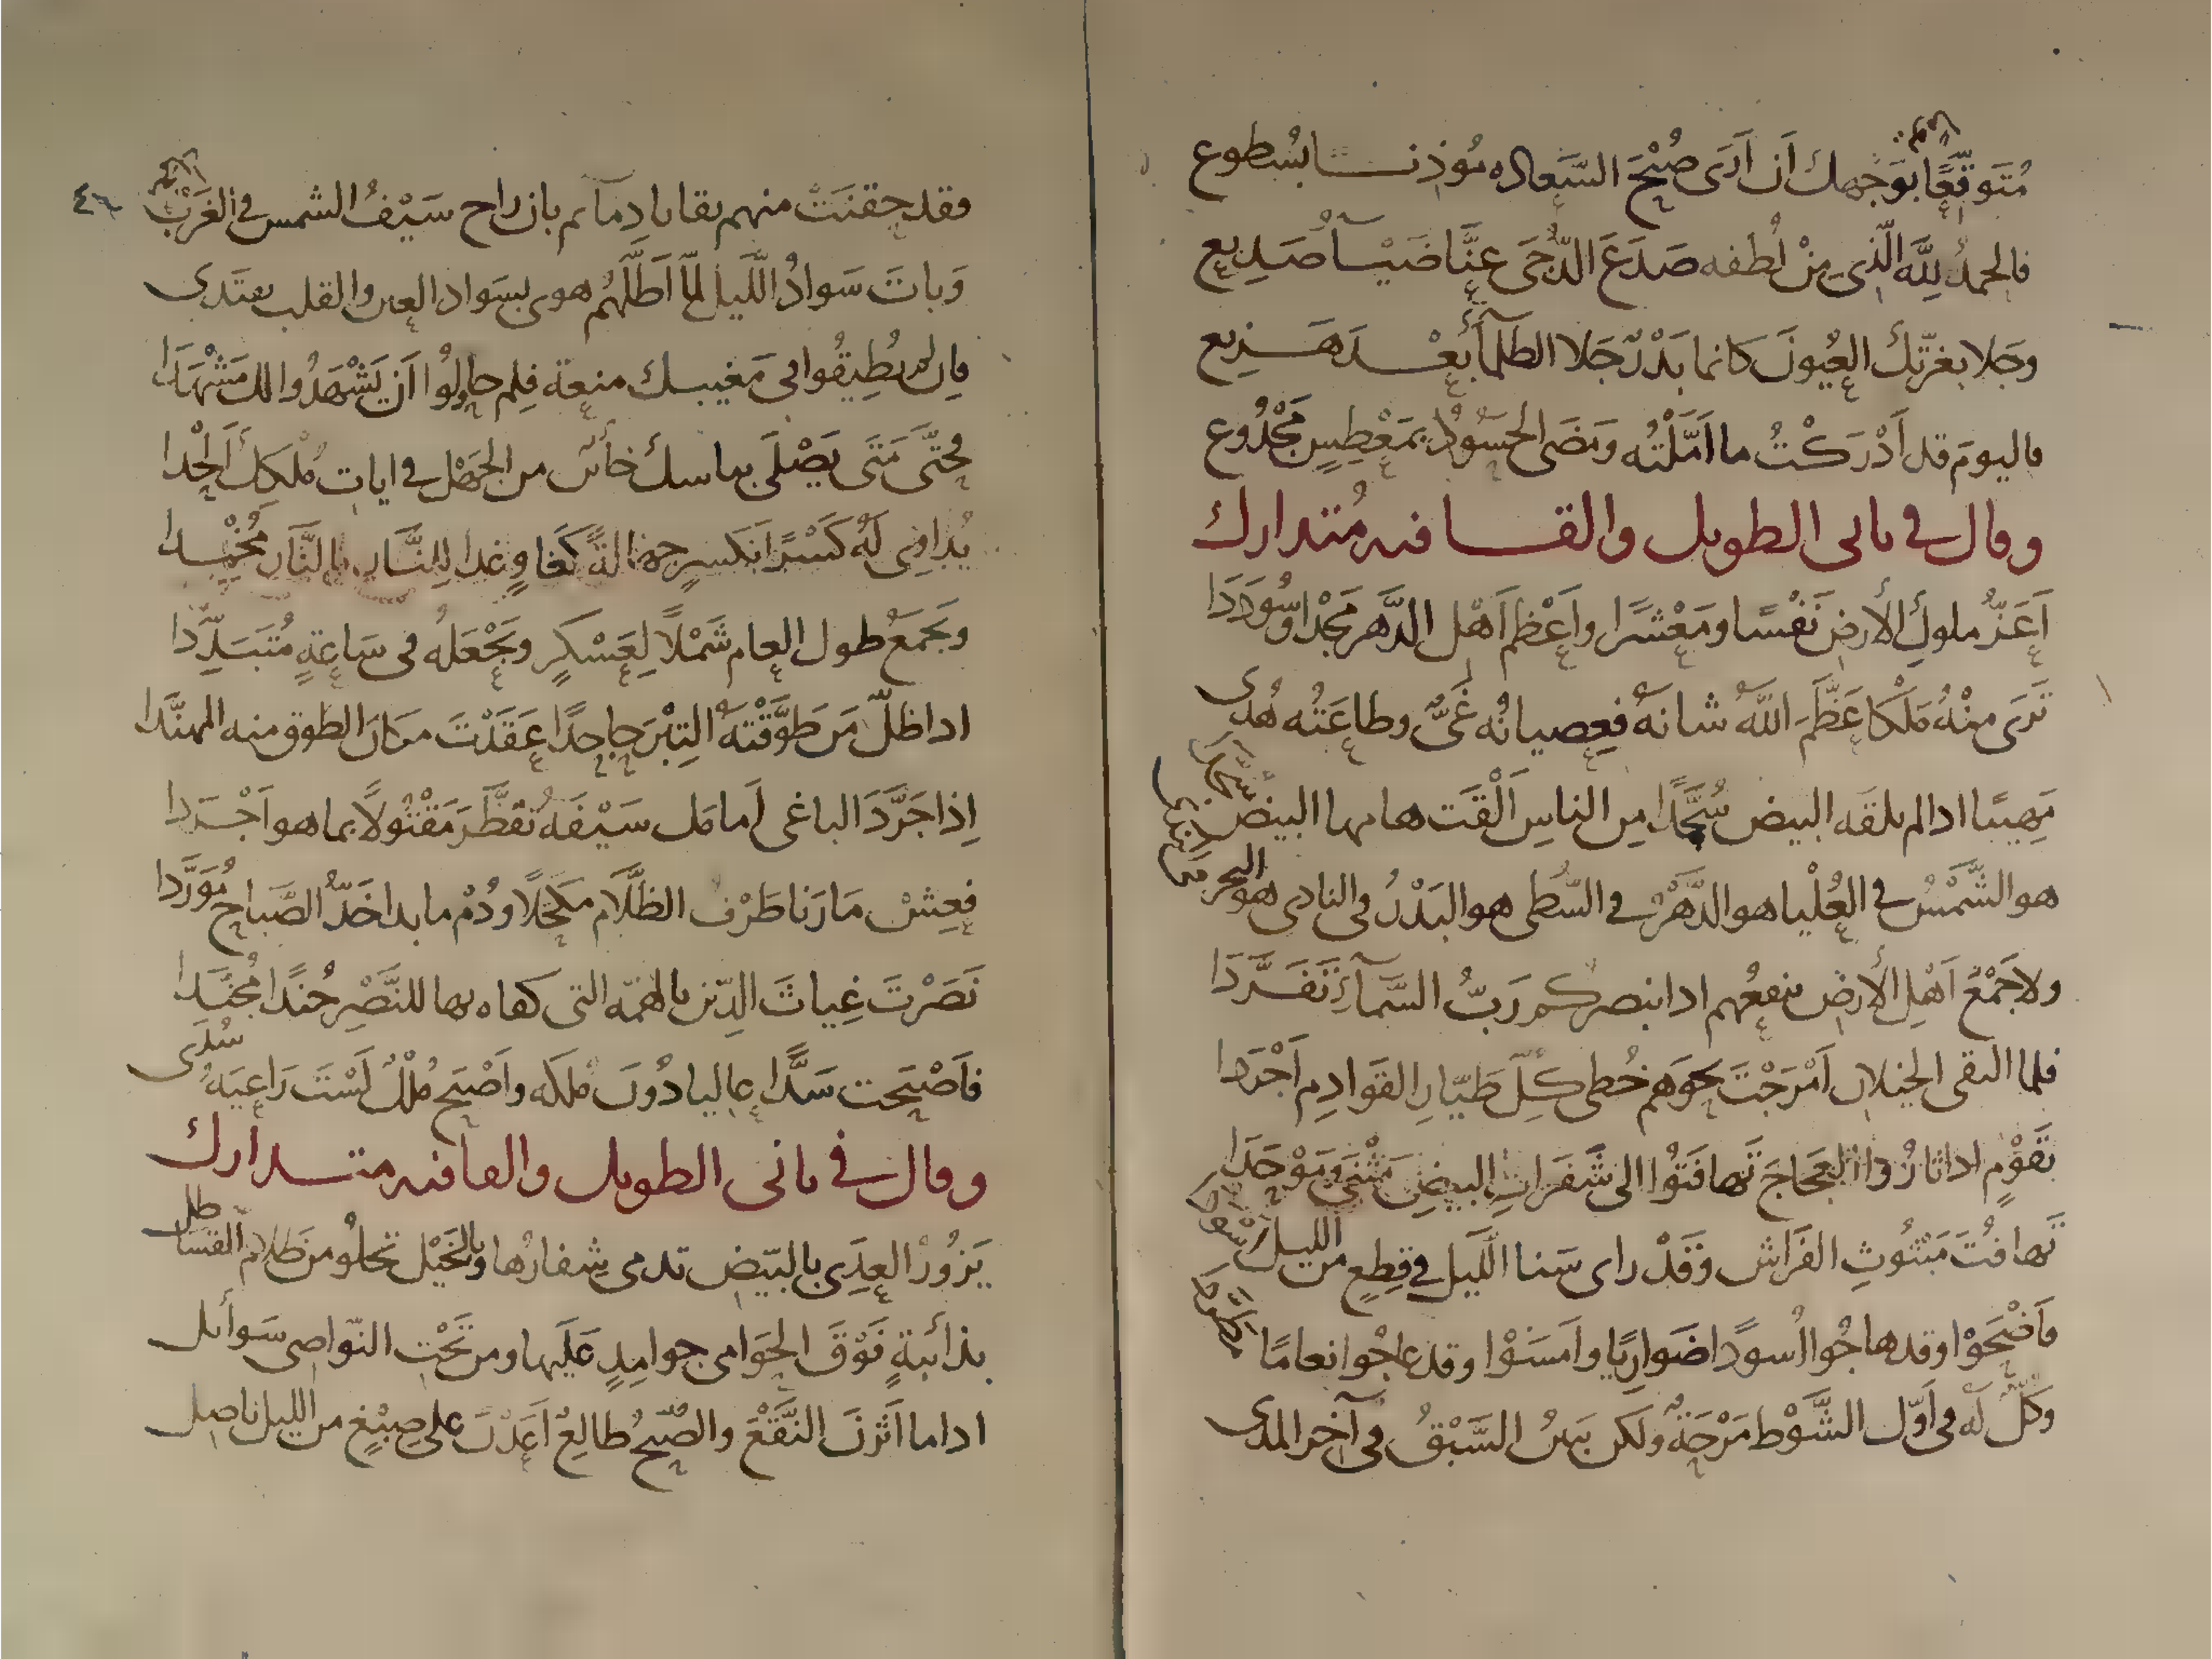 مُتَوقِّعًا بوَجهك أن أرَى صُبْحَ السَّعاده مؤذنـــا بسُطوع
فالحمدُ لِلّه الّذى مِنْ لُطفه صَدَعَ الدُّجَى عنَّا ضيــآ صَدِيع
وجَلا بغرّتك العُيونَ كانما بَدْرٌ جَلا الظلمآءَ بعْــدَ هَــزِيع
فاليومَ قد أدْرَكْتُ ما امَّلْتُه ومَضَى الحسُودُ بمَعْطِسٍ مَجْدُوع
وقال فى ثانى الطويل والقــافيه مُتدارك
أعَزُّ ملوكِ الأرض نَفْسًا ومَعْشَرًا واعْظم أهْل الدَّهر مَجْدا وسُوددَا
تَرَى منْهُ مَلْكا عَظَّمَ اللَّهُ شانهُ فعِصيانُه غَىٌّ وطاعَتُه هُدى
مَهِيبًا اذا لم تلقه البيض سُجَّدًا مِن الناسِ ألْقَت هامها البيض سُجَّدا
هو الشَّمْسُ فى العُلْيا هو الدَّهْرُ فى السُّطى هو البَدْرُ فى النادى هو البحر فى الندى
ولا جَمْعُ أهْلِ الأرض ينفعُهم اذا بنصركم رَبُّ السَّمآءِ تَفَرَّدَا
فلما التقى الخيلان أمْرَجْتَ نحوَهم خُطى كُلّ طيّارِ القَوادِم أجْرَدا
بقَوْمٍ اذا ثارُوا العجَاجَ تَهافَتُوا الى شَفَراتِ البيضِ مَثْنَى ومَوْحَدَا
تَهافُتَ مَبْثُوثِ الفَرَاش وقَدْ راى سَنا الَّليل فى قِطعٍ من الليل اسْودا
فأضْحَوْا وقد هاجُوا أُسودًا ضَوارِيًا وامسَوْا وقد عاجُوا نعامًا
وكُلٌّ له فى أوّل الشَّوْط مَرْحَةٌ ولكن يَبينُ السَّبْقُ فى آخر المدى
٤٦
وقد حقنَتْ منهم بقايا دمآئهم بان راح سَيْفُ الشمس فى الغَرْب
وَباتَ سَوادُ اللَّيل لمّا أظَلَّهُم هوى بسَواد العين والقلب يفتَدى
فإن لم يطِيقُوا فى مَغيبك منعة فلم حاولُوا أن يَشْهَدُوا لك مَشْهَدَا
فحتَّى مَتَى يَصْلَى بباسك خاسرٌ من الجهْل فى ايات مُلكك ألحدا
وتجمَعُ طول العام شَمْلاً لِعَسْكرٍ وتَجْعَلهُ فى سَاعةٍ مُتبَدِّدا
اذا ظلّ مَن طَوَّقْتَهُ التِبْرَ جاحدًا عقَدْتَ مكان الطوق منه المهنَّدا
إذا جَرَّدَ الباغى أمامك سَيْفَه تقطَّرَ مَقْتُولاً بما هو أجْرَدا
فعِشْ مَا رَنا طَرْف الظَّلَام مكحّلاً ودُمْ ما بدا خَدُّ الصَّباح مُورَّدا
نَصَرْتَ غِياثَ الدِّين بالهمّه التى كفاه بها للنَّصْرِ جُندًا مُجنَّدا
فأصْبَحت سَدًّا عاليا دُونَ مُلكه واصْبَح مُلكٌ لَسْتَ رَاعِيَهُ سُدَى
وقال فى ثانى الطويل والقافيه متــدارك
يَزُورُ العِدَى بالبّيض تدمى شِفارُها وبالخَيْل تجلُو من ظلام القساطل
بذائبةٍ فَوْقَ الحَوَامى جوامِدٍ عَلَيها ومن تَحْتِ النّواصى سَوائل
اذا ما أثَرْنَ النَّقْعَ والصُّبحُ طالِعٌ أعَدْنَ على صِبْغٍ من الليل ناصِل